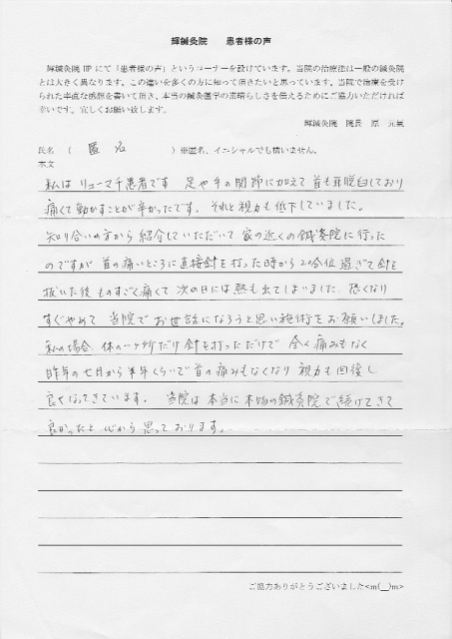 輝鍼灸院　患者様の声
輝鍼灸院HPにて「患者様の声」というコーナーを設けています。当院の治療法は一般の鍼灸院
とは大きく異なります。この違いを多くの方に知って頂きたいと思っています。当院で治療を受け
られた率直な感想を書いて頂き、本当の鍼灸医学の素晴らしさを伝えるためにご協力いただければ
幸いです。宜しくお願い致します。
輝鍼灸院　院長　原　元氣
氏名（　匿名　）※匿名、イニシャルでも構いません。
本文
私は リューマチ患者です 足や手の関節に加えて 首も亜脱臼しており
痛くて動かすことが辛かったです。それと視力も低下していました。
知り合いの方から 紹介していただいて 家の近くの鍼灸院に行った
のですが 首の痛いところに直接針を打った時から20分位過ぎて針を
抜いた後 ものすごく痛くて 次の日には熱も出てしまいました 恐くなり
すぐやめて 当院でお世話になろうと思い施術をお願いしました。
私の場合 体の一ヶ所だけ針を打っただけで 全く痛みもなく
昨年の七月から半年くらいで首の痛みもなくなり 視力も回復し
良くなってきています。 当院は本当に本物の鍼灸院で続けてきて
良かったと心から思っております。
ご協力ありがとうございました<m(__)m>